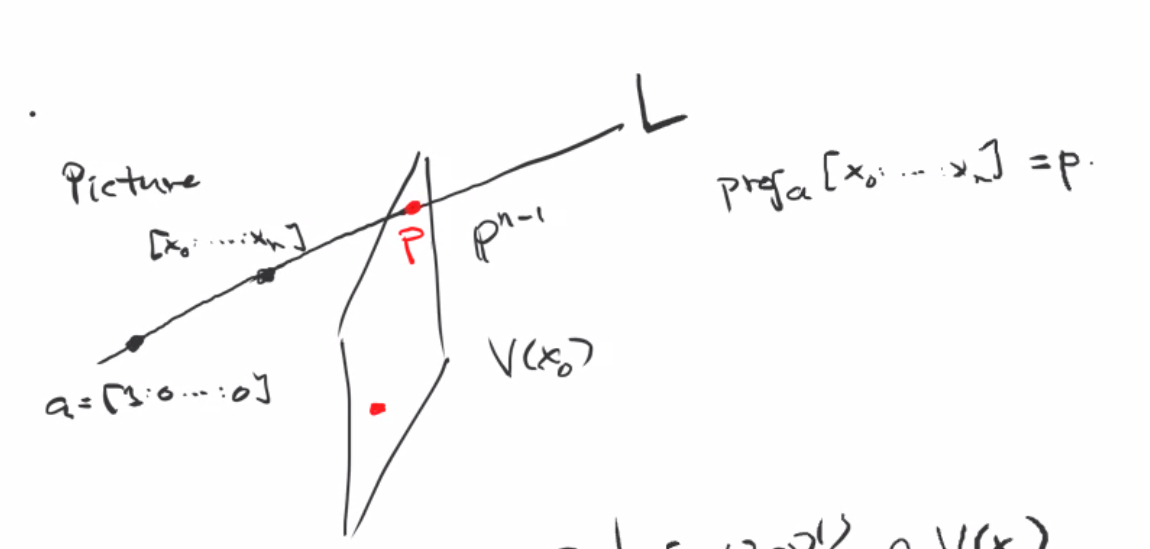 L
Picture
proj_a [x_0: ... : x_n] = p.
[x_0: ... : x_n]
P
P^{n-1}
V(x_0)
a = [1:0 ... :0]